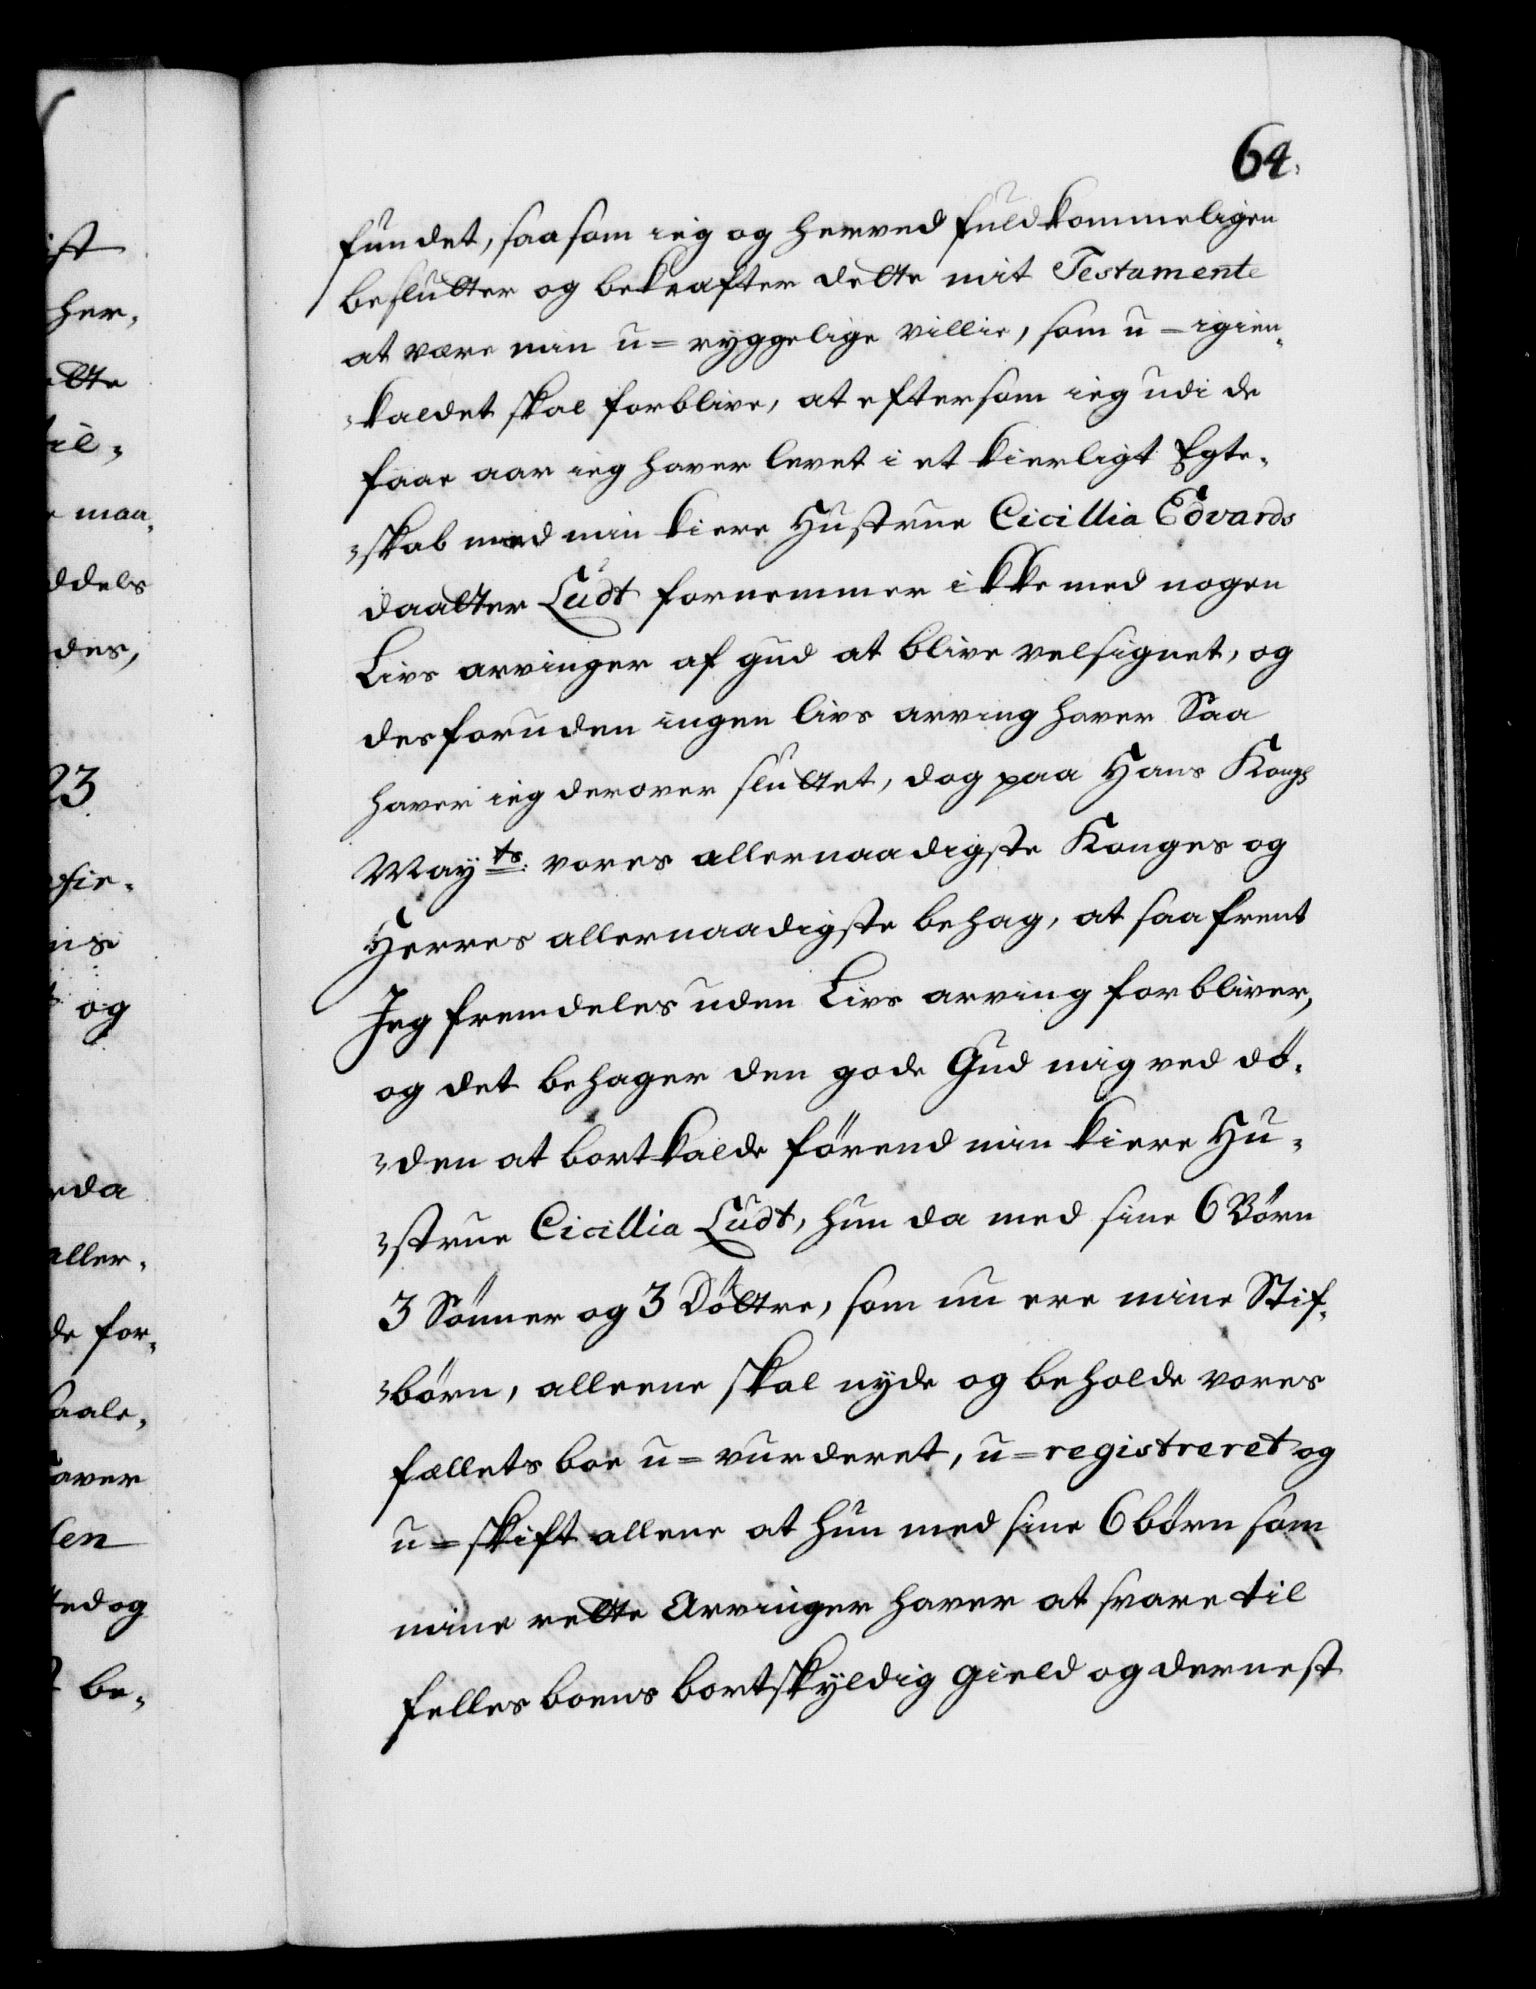 64.
fundet, saasom ieg og herved fuldkommeligen
beslutter og bekrafter dette mit Testamente
at være min u=ryggelige villie, som u=igien-
kaldet skal forblive, at eftersom ieg udi de
faae aar ieg haver levet i et kierligt Egte-
skab med min kiere Hustrue Cicillia Edvards
daatter Ludt fornemmer ikke med nogen
Livs arvinger af gud at blive velsignet, og
desforuden ingen livs arving haver Saa
haver ieg derover sluttet, dog paa Hans Kongl
Mayts. vores allernaadigste Konges og
Herres allernaadigste behag, at saafremt
Jeg fremdeles uden Livs arving forbliver,
og det behager den gode Gud mig ved dö-
den at bortkalde förend min kiere Hu-
strue Cicillia Ludt, hun da med sine 6 Börn
3 Sönner og 3 Döttre, som nu ere mine Stif-
börn, alleene skal nyde og beholde vores
fællets boe u=vurderet, u=registreret og
u=skift allene at hun med sine 6 börn som
mine rette Arvinger haver at svare til
felles boens bortskyldig gield og dernest
ist
her,
ette
til,
maa,
ddels
des,
23
og
rda
aller,
de for,
saale,
haver
en
og
be,